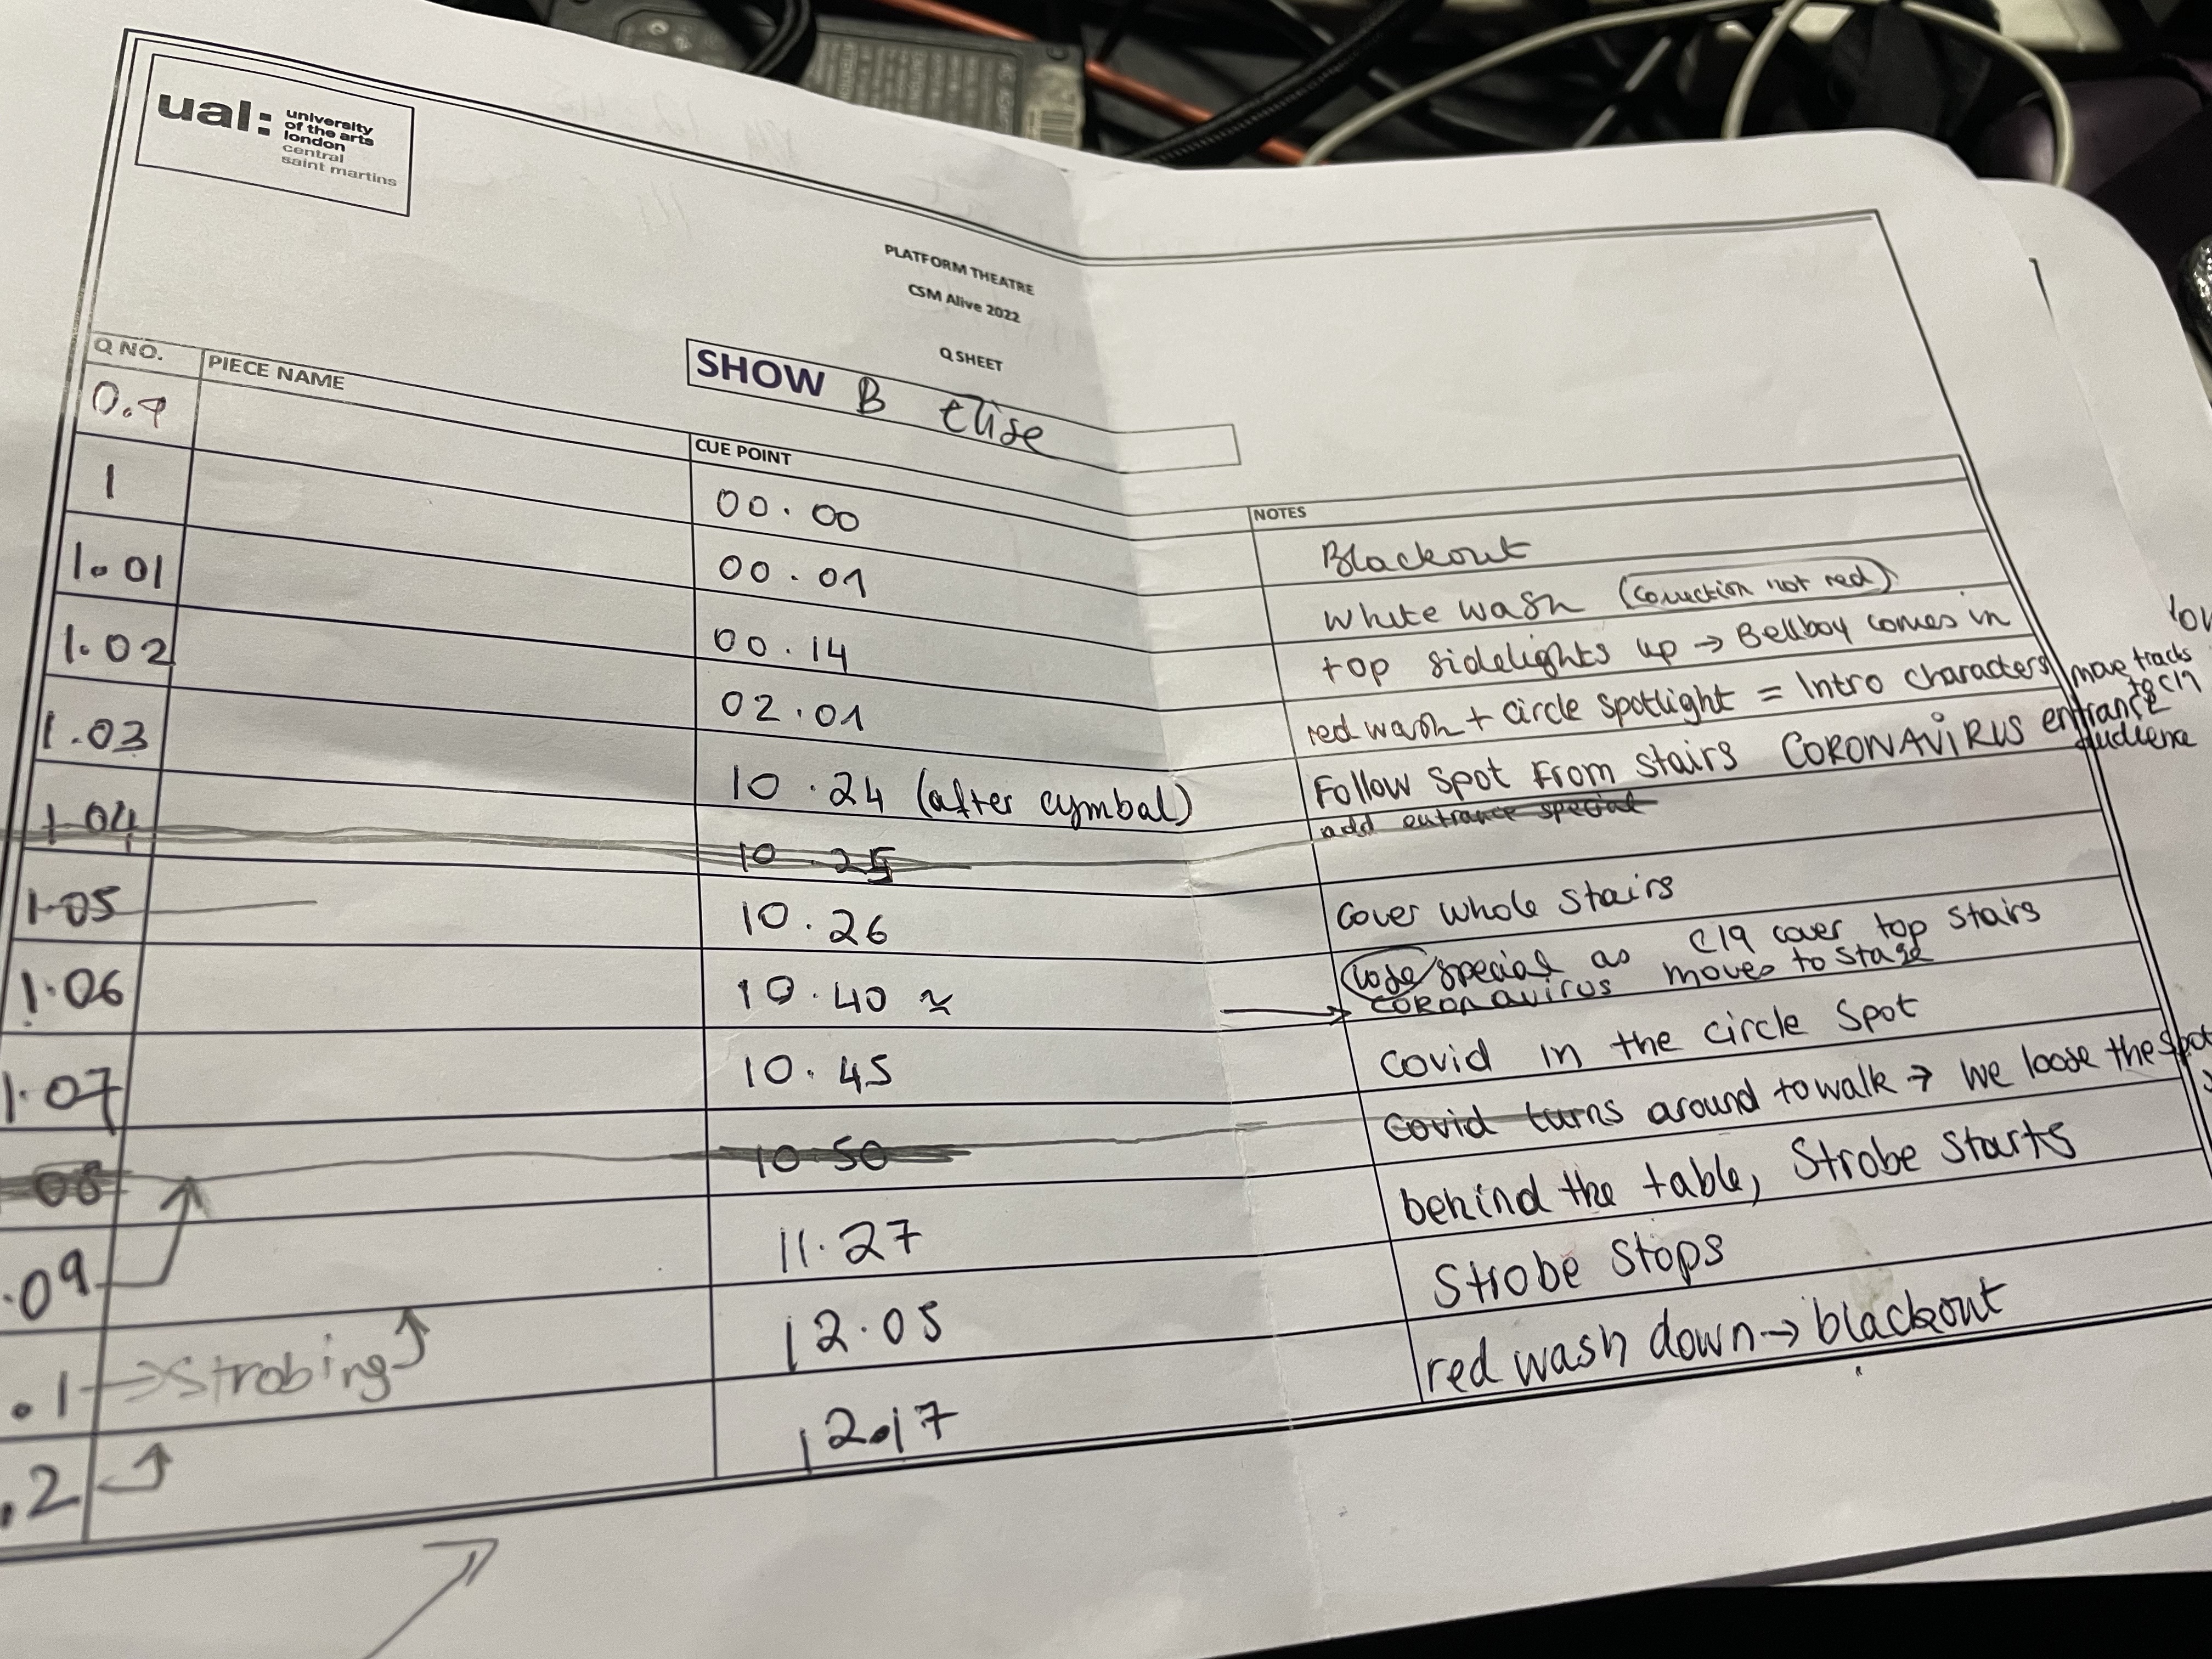 ual: university
of the arts
london
central
saint martins
PLATFORM THEATRE
CSM Alive 2022
Q SHEET
SHOW B Elise
Q NO. PIECE NAME CUE POINT NOTES
1 00.00 Blackout
1.01 00.01 White wash (correction not red)
1.02 00.14 top sidelights up → Bellboy comes in
1.03 02.01 red wash + circle spotlight = Intro characters
move tracks
to C19
entrance
audience
10.24 (after cymbal) Follow Spot From stairs CORONAVIRUS
add entrance special
1.04 10.25
1.05 10.26 Cover whole stairs
1.06 10.40 ≈ lose special as C19 cover top stairs
→ CORONAVIRUS moves to stage
1.07 10.45 Covid in the circle Spot
08 10.50 Covid turns around to walk → we loose the spot
.09 11.27 behind the table, Strobe starts
.1 → Strobing 12.05 Strobe Stops
.2 12.17 red wash down → blackout